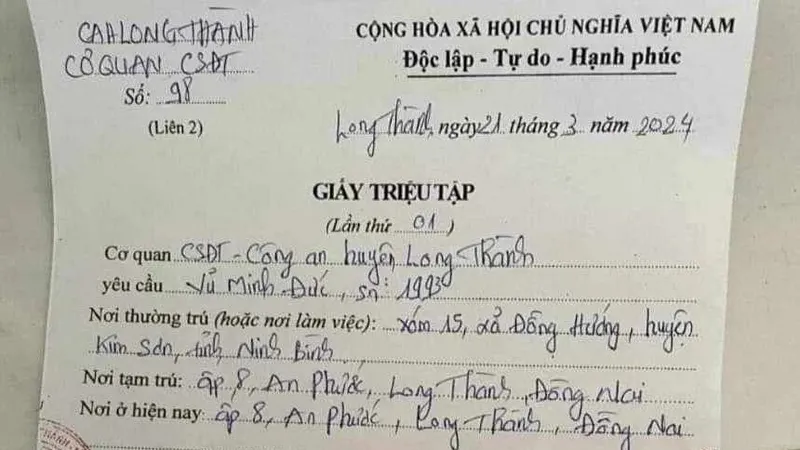 CAH LONG THÀNH
CƠ QUAN CSĐT
Số: 98
(Liên 2)
CỘNG HÒA XÃ HỘI CHỦ NGHĨA VIỆT NAM
Độc lập - Tự do - Hạnh phúc
Long Thành, ngày 21 tháng 3 năm 2024
GIẤY TRIỆU TẬP
(Lần thứ 01)
Cơ quan CSĐT - Công an huyện Long Thành
yêu cầu Vũ Minh Đức, sn: 1993
Nơi thường trú (hoặc nơi làm việc): xóm 15, xã Đồng Hướng, huyện
Kim Sơn, tỉnh Ninh Bình
Nơi tạm trú: ấp 8, An Phước, Long Thành, Đồng Nai
Nơi ở hiện nay: ấp 8, An Phước, Long Thành, Đồng Nai